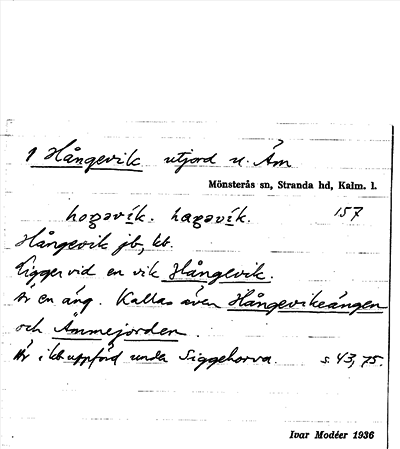 1 Hångevik utjord u. Äm
Mönsterås sn, Stranda hd, Kalm. l.
hoŋəvik. haŋəvik. 157
Hångevik jb, kb.
Ligger vid en vik Hångevik.
Är en äng. Kallas även Hångevikeängen
och Ämmejorden.
Är i kb uppförd under Siggehorva. s. 43, 75.
Ivar Modéer 1936